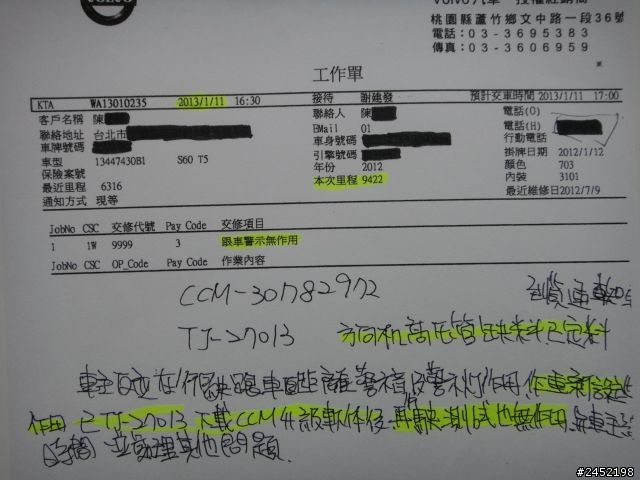 VOLVO
Volvo 汽車
桃園縣蘆竹鄉文中路一段36號
電話:03-3695383
傳真:03-3606959
工作單
KTA WA13010235 2013/1/11 16:30 接待 謝建發 預計交車時間 2013/1/11 17:00
客戶名稱 陳 聯絡人 陳 電話(O)
聯絡地址 台北市 EMail 01 電話(H)
車牌號碼 車身號碼 行動電話
車型 13447430B1 S60 T5 引擎號碼 掛牌日期 2012/1/12
保險案號 年份 2012 顏色 703
最近里程 6316 本次里程 9422 內裝 3101
通知方式 現等 最近維修日 2012/7/9
JobNo CSC 交修代號 Pay Code 交修項目
1 1W 9999 3 跟車警示無作用
JobNo CSC OP_Code Pay Code 作業內容
CCM-30782972 到貨通知
TJ-27013 方向机高压管缺料已定料
車主反应在行駛跟車距離警示 警示灯作用
作用 已TJ-27013下載CCM升級軟体後 再駛測試也無作用
時間 並處理其他問題.
#2452198